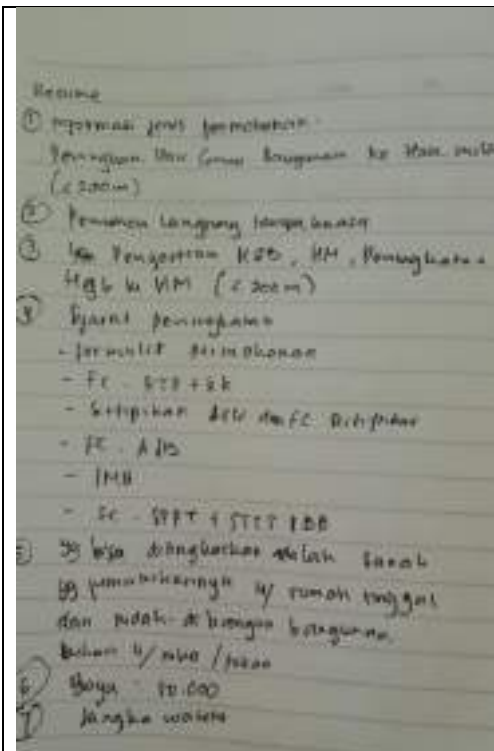 Resume
① informasi jenis permohonan
Peningkatan Hak Guna Bangunan ke Hak milik
(< 200m)
② Pemohon langsung tanpa kuasa
③ Pengertian HGB, HM, Peningkatan
HGB ke HM (< 200m)
④ Syarat peningkatan
- formulir permohonan
- FC. KTP + KK
- Sertipikat Asli dan FC Sertipikat
- FC. AJB
- IMB
- FC. SPPT + STTS PBB
⑤ yg bisa ditingkatkan adalah tanah
yg u/ rumah tinggal
dan sudah di bangun bangunan.
bukan u/ ruko / 
⑥ Biaya 50.000
⑦ Jangka waktu